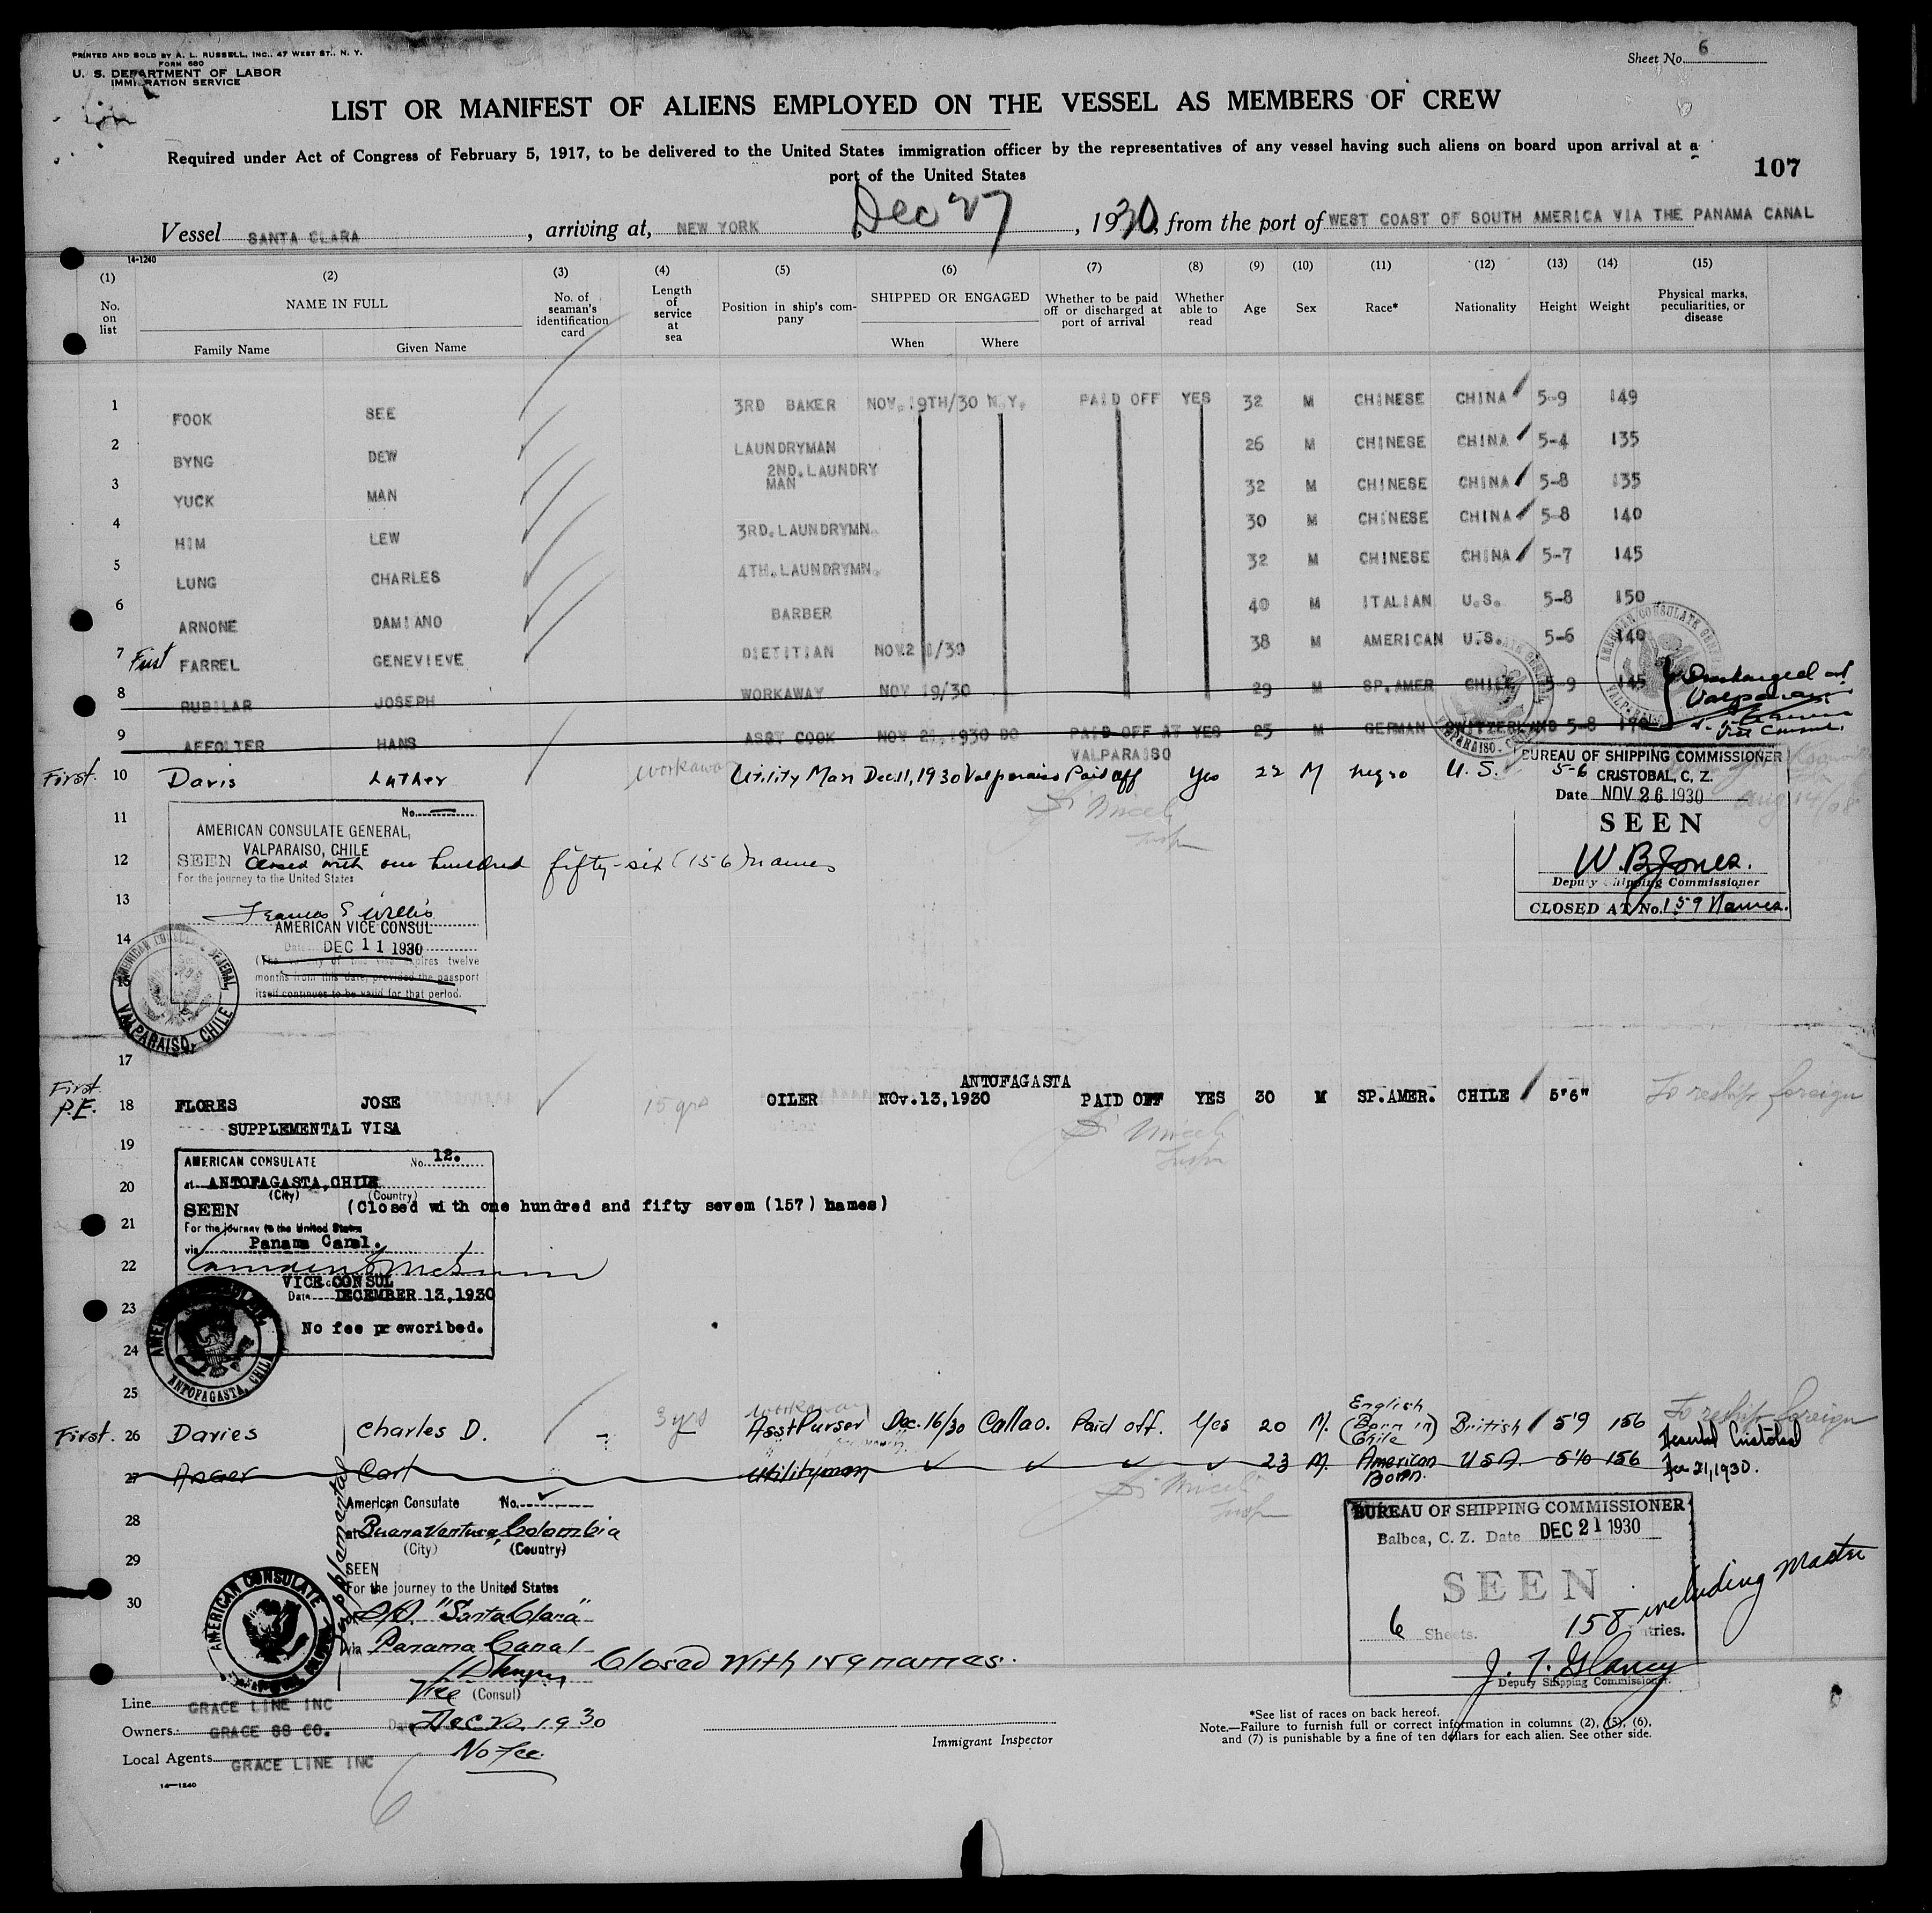 PRINTED AND SOLD BY A. L. RUSSELL, INC., 47 WEST ST., N. Y.
FORM 680
U. S. DEPARTMENT OF LABOR
IMMIGRATION SERVICE
Sheet No. 6
LIST OR MANIFEST OF ALIENS EMPLOYED ON THE VESSEL AS MEMBERS OF CREW
Required under Act of Congress of February 5, 1917, to be delivered to the United States immigration officer by the representatives of any vessel having such aliens on board upon arrival at a
port of the United States
107
Vessel SANTA CLARA, arriving at, NEW YORK Dec 27, 1930, from the port of WEST COAST OF SOUTH AMERICA VIA THE PANAMA CANAL
14-1240
(1) (2) (3) (4) (5) (6) (7) (8) (9) (10) (11) (12) (13) (14) (15)
No. on list
NAME IN FULL
Family Name Given Name
No. of seaman's identification card
Length of service at sea
Position in ship's company
SHIPPED OR ENGAGED
When Where
Whether to be paid off or discharged at port of arrival
Whether able to read
Age
Sex
Race*
Nationality
Height
Weight
Physical marks, peculiarities, or disease
1 FOOK SEE 3RD BAKER NOV. 19TH/30 N.Y. PAID OFF YES 32 M CHINESE CHINA 5-9 149
2 BYNG DEW LAUNDRYMAN 26 M CHINESE CHINA 5-4 135
3 YUCK MAN 2ND. LAUNDRY MAN 32 M CHINESE CHINA 5-8 135
4 HIM LEW 3RD. LAUNDRYMN. 30 M CHINESE CHINA 5-8 140
5 LUNG CHARLES 4TH. LAUNDRYMN. 32 M CHINESE CHINA 5-7 145
6 ARNONE DAMIANO BARBER 40 M ITALIAN U.S. 5-8 150
7 First FARREL GENEVIEVE DIETITIAN NOV.21/30 38 M AMERICAN U.S. 5-6 140
8 RUBILAR JOSEPH WORKAWAY NOV 19/30 29 M SP.AMER CHILE 5-9 145 Discharged at Valparaiso
9 AFFOLTER HANS ASST COOK NOV 21,1930 DO PAID OFF AT VALPARAISO YES 25 M GERMAN SWITZERLAND 5-8 170
Vice Consul
First. 10 Davis Luther workaway Utility Man Dec 11, 1930 Valparaiso Paid off Yes 22 M negro U. S. 5-6
Aug 14/08
BUREAU OF SHIPPING COMMISSIONER
CRISTOBAL, C. Z.
Date NOV 26 1930
SEEN
W. B. Jones.
Deputy Shipping Commissioner
CLOSED AT No. 159 Names.
11
No.
AMERICAN CONSULATE GENERAL,
VALPARAISO, CHILE
12 SEEN Closed with one hundred fifty-six (156) names
For the journey to the United States
13
Frances E Willis
AMERICAN VICE CONSUL
14
Date DEC 11 1930
(The validity of this visa expires twelve
months from this date, provided the passport
itself continues to be valid for that period.
15
AMERICAN CONSULATE GENERAL, VALPARAISO, CHILE
17
First. P.E. 18 FLORES JOSE 15 yrs OILER NOV.13,1930 ANTOFAGASTA PAID OFF YES 30 M SP.AMER. CHILE 5'6" To reship foreign
SUPPLEMENTAL VISA
19
AMERICAN CONSULATE No. 12.
20 at ANTOFAGASTA, CHILE
(City) (Country)
SEEN (Closed with one hundred and fifty sevem (157) names)
21 For the journey to the United States
via Panama Canal.
22
VICE CONSUL
Date DECEMBER 13,1930
23
No fee prewcribed.
24
AMERICAN CONSULATE ANTOFAGASTA, CHILE
25
First. 26 Davies Charles D. 3 yrs workaway Asst Purser Dec. 16/30 Callao. Paid off. Yes 20 M. English (Born in Chile) British 5'9 156 To reship foreign
27 Anger Carl Utilityman 23 M. American Born. USA 5'10 156 Deserted Cristobal Dec 21, 1930.
28
29
30
Supplemental
American Consulate No.
at Buenaventura, Colombia
(City) (Country)
SEEN
For the journey to the United States
"Santa Clara"
via Panama Canal
Closed with 159 names.
Vice (Consul)
Date Dec 20, 1930
No fee.
AMERICAN CONSULATE
BUREAU OF SHIPPING COMMISSIONER
Balboa, C. Z. Date DEC 21 1930
SEEN
6 Sheets. 158 entries. including Master
J. T. Glancy
Deputy Shipping Commissioner.
Line GRACE LINE INC
Owners GRACE SS CO.
Local Agents GRACE LINE INC
14-1240
Immigrant Inspector
*See list of races on back hereof.
Note.—Failure to furnish full or correct information in columns (2), (5), (6),
and (7) is punishable by a fine of ten dollars for each alien. See other side.